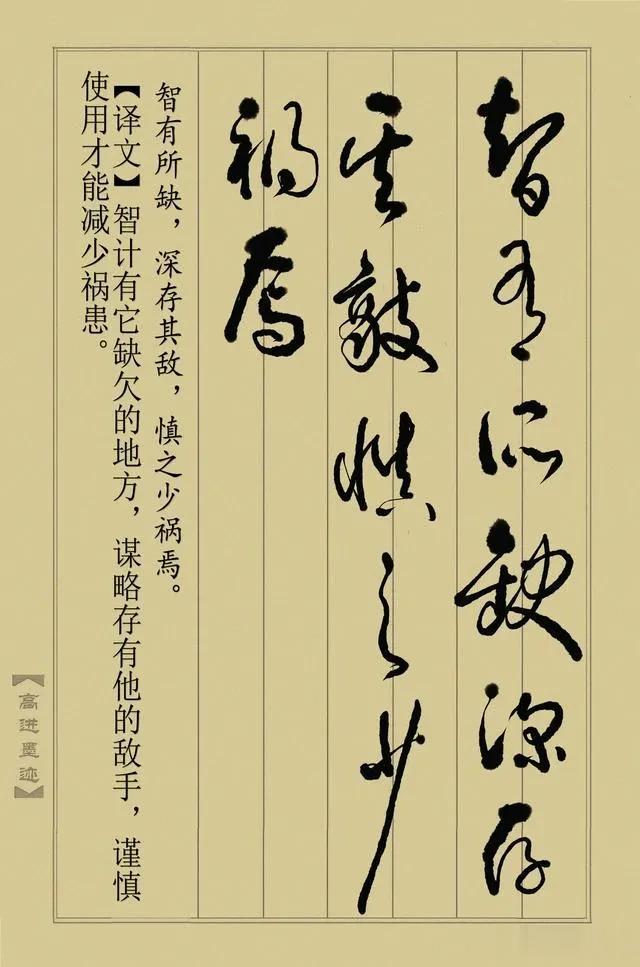 智有所缺深存
其敌慎之少
祸焉
智有所缺，深存其敌，慎之少祸焉。
【译文】智计有它缺欠的地方，谋略存有他的敌手，谨慎
使用才能减少祸患。
【高进墨迹】